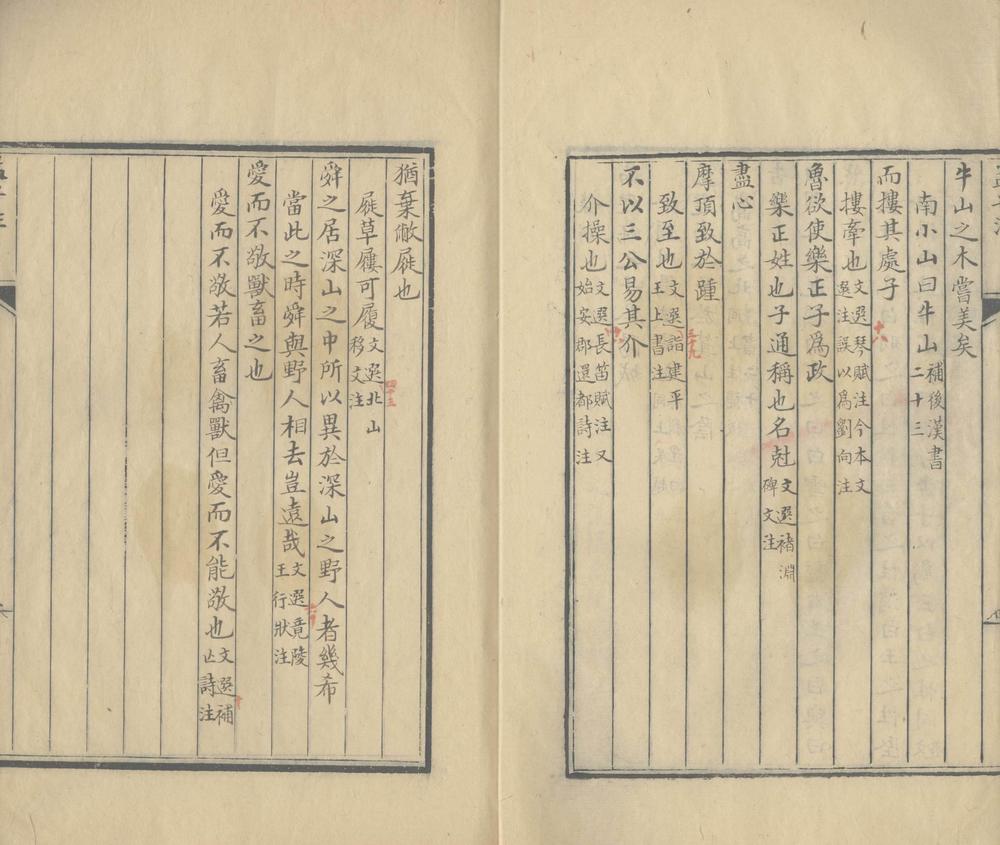 牛山之木嘗美矣
南小山曰牛山補後漢書二十三
而摟其處子
摟牽也文選琴賦注今本文選注誤以為劉向注
十八
魯欲使樂正子爲政
樂正姓也子通稱也名尅文選褚淵碑文注
盡心
摩頂致於踵
致至也文選詣建平王上書注
不以三公易其介
介操也文選長笛賦注又始安郡還都詩注
猶棄敝屣也
屣草屨可履文選北山移文注
四十三
舜之居深山之中所以異於深山之野人者幾希
當此之時舜與野人相去豈遠哉文選竟陵王行狀注
六十
愛而不敬獸畜之也
愛而不敬若人畜禽獸但愛而不能敬也文選補亾詩注